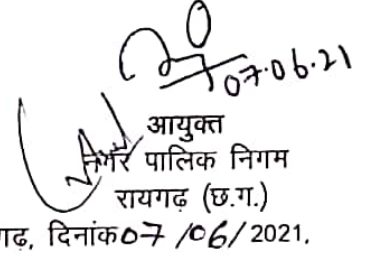 07.06.21
आयुक्त
नगर पालिक निगम
रायगढ़ (छ.ग.)
गढ़, दिनांक 07 /06/ 2021.